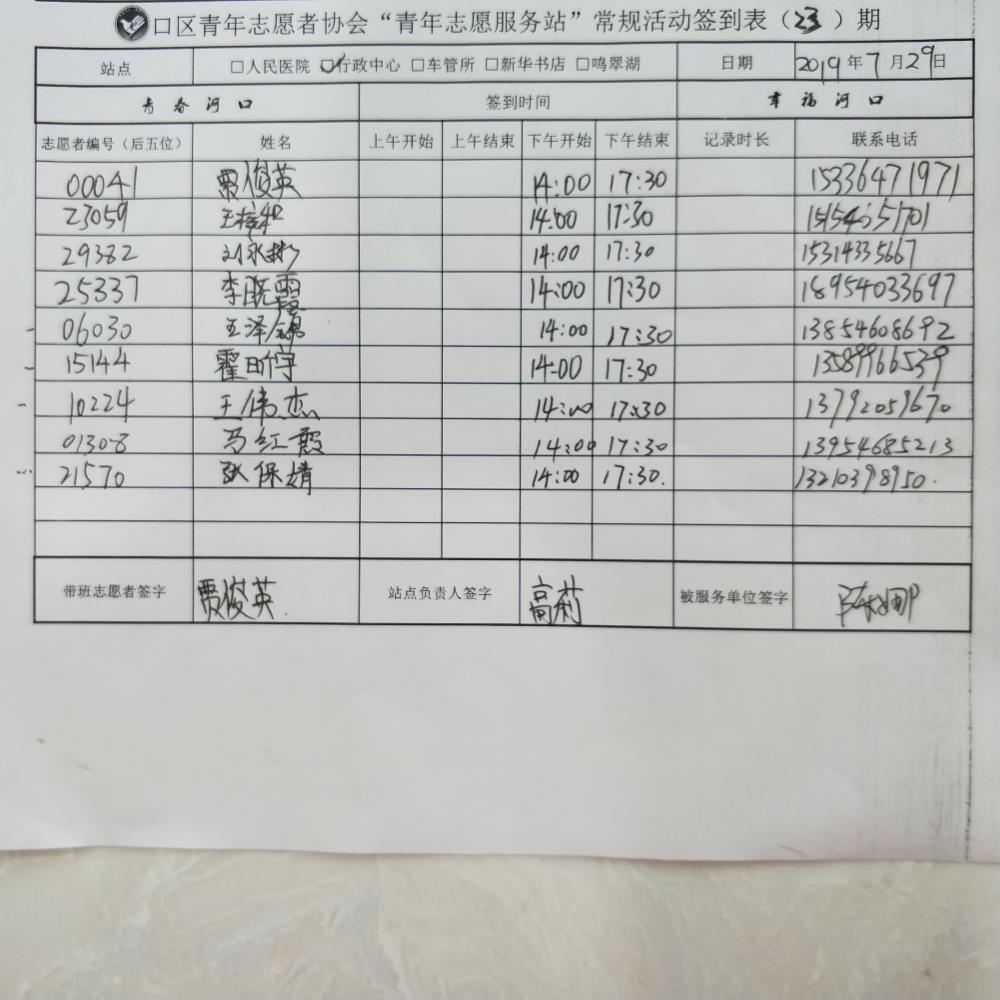 口区青年志愿者协会“青年志愿服务站”常规活动签到表（23）期
站点 □人民医院 ☑行政中心 □车管所 □新华书店 □鸣翠湖 日期 2019年7月29日
青春河口 签到时间 幸福河口
志愿者编号（后五位） 姓名 上午开始 上午结束 下午开始 下午结束 记录时长 联系电话
00041 贾俊英 14:00 17:30 15336471971
23059 14:00 17:30
29382 刘永彬 14:00 17:30 15314335667
25337 李晓霞 14:00 17:30 18954033697
06030 王泽锦 14:00 17:30 13854608692
15144 霍昕宇 14:00 17:30 13589966539
10224 王伟杰 14:00 17:30 13792059670
01308 马红霞 14:00 17:30 13954685213
21570 张保婧 14:00 17:30. 13210398950.
带班志愿者签字 贾俊英. 站点负责人签字 高莉 被服务单位签字